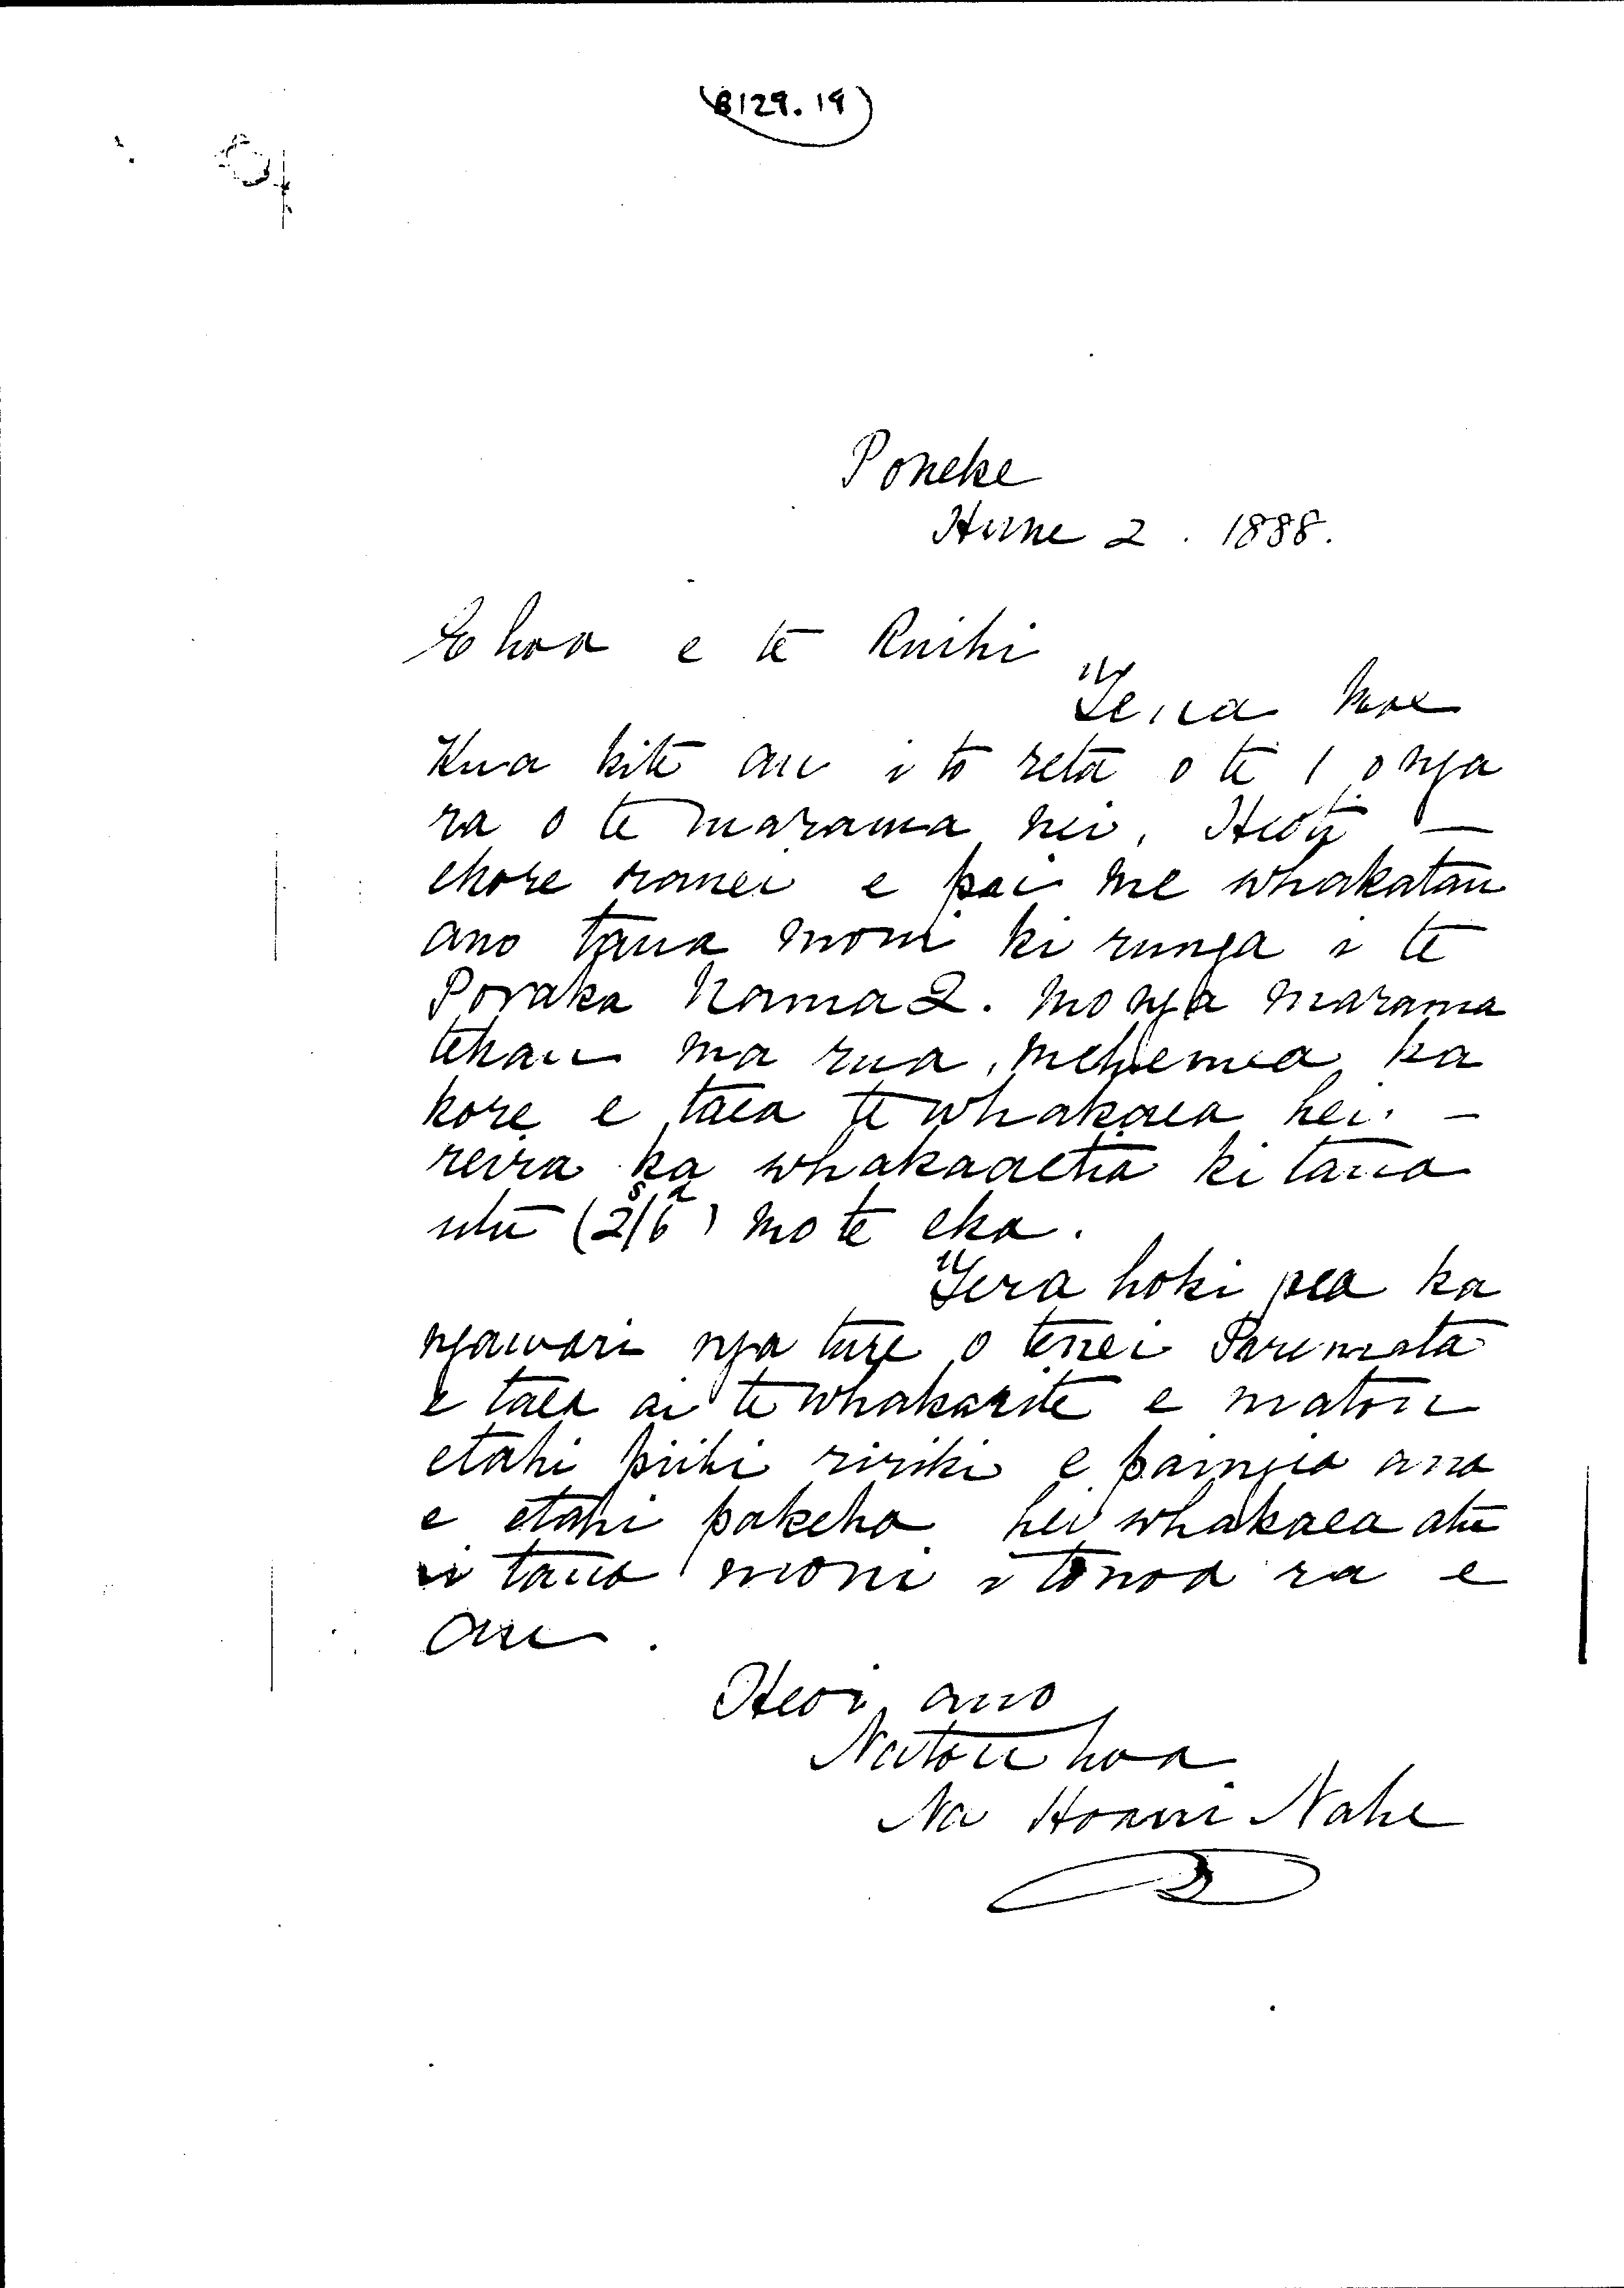 (B129.19)
Poneke
Hune 2. 1888.
E hoa e te Ruihi
Tena koe
Kua kite au i to reta o te 1 o nga
ra o te marama nei. Heoti
ekore ranei e pai me whakatau
ano taua moni ki runga i te
Poraka Nama 2. mo nga marama
tekau ma rua, mehemea ka
kore e taea te whakaea hei
reira ka whakaaetia ki taua
utu (2s/6d) mo te eka.
Tera hoki pea ka
ngawari nga ture o tenei Paremata
e taea ai te whakarite e matou
etahi piihi ririki e paingia ana
e etahi pakeha hei whakaea atu
i taua moni i tonoa ra e
au.
Heoi ano
Na to hoa
Na Hoani Nahe